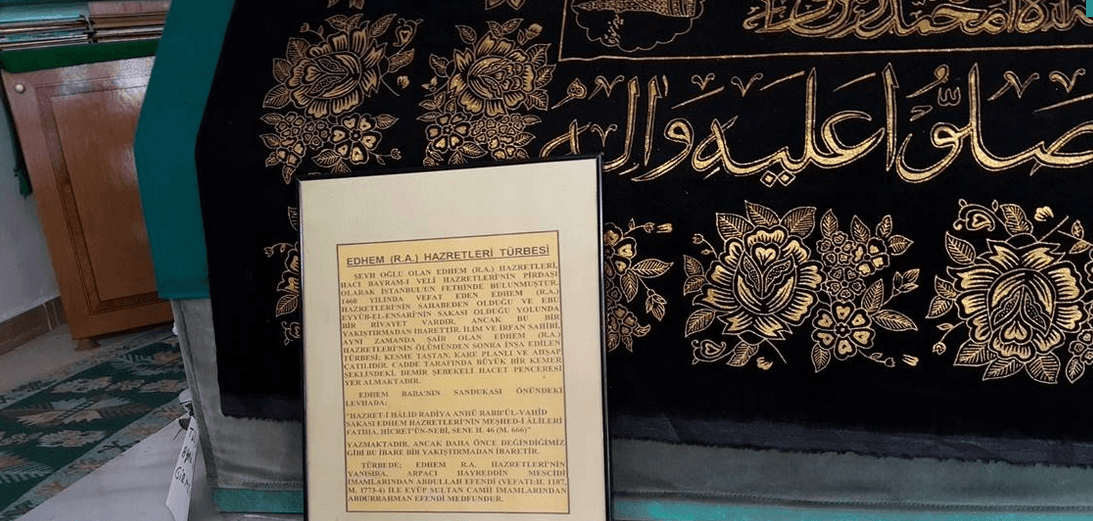 صلوا عليه واله
EDHEM (R.A.) HAZRETLERİ TÜRBESİ
ŞEYH OĞLU OLAN EDHEM (R.A.) HAZRETLERİ,
HACI BAYRAM-I VELİ HAZRETLERİ'NİN PİRDAŞI
OLARAK İSTANBUL'UN FETHİNDE BULUNMUŞTUR.
1460 YILINDA VEFAT EDEN EDHEM (R.A.)
HAZRETLERİ'NİN SAHABEDEN OLDUĞU VE EBU
EYYÜB-EL-ENSARİ'NİN SAKASI OLDUĞU YOLUNDA
BİR RİVAYET VARDIR. ANCAK BU BİR
YAKIŞTIRMADAN İBARETTİR. İLİM VE İRFAN SAHİBİ,
AYNI ZAMANDA ŞAİR OLAN EDHEM (R.A.)
HAZRETLERİ'NİN ÖLÜMÜNDEN SONRA İNŞA EDİLEN
TÜRBESİ; KESME TAŞTAN, KARE PLANLI VE AHŞAP
ÇATILIDIR. CADDE TARAFINDA BÜYÜK BİR KEMER
ŞEKLİNDEKİ, DEMİR ŞEBEKELİ HACET PENCERESİ
YER ALMAKTADIR.
EDHEM BABA'NIN SANDUKASI ÖNÜNDEKİ
LEVHADA;
"HAZRET-İ HÂLİD RADİYA ANHÜ RABB'ÜL-VAHİD
SAKASI EDHEM HAZRETLERİ'NİN MEŞHED-İ ÂLİLERİ
FATİHA, HİCRET'ÜN-NEBİ, SENE H. 46 (M. 666)"
YAZMAKTADIR. ANCAK DAHA ÖNCE DEĞİNDİĞİMİZ
GİBİ BU İBARE BİR YAKIŞTIRMADAN İBARETİR.
TÜRBEDE; EDHEM R.A. HAZRETLERİ'NİN
YANISIRA, ARPACI HAYREDDİN MESCİDİ
İMAMLARINDAN ABDULLAH EFENDİ (VEFATI:H. 1187,
M. 1773-4) İLE EYÜP SULTAN CAMİİ İMAMLARINDAN
ABDURRAHMAN EFENDİ MEDFUNDUR.